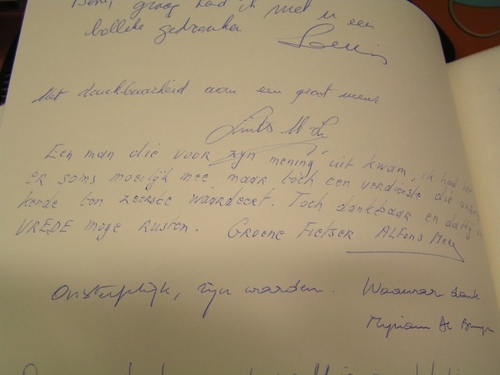 graag had ik met u een
bolleke gedronken
Met dankbaarheid aan een groot mens
Een man die voor zijn mening uit kwam, ik had
er soms moeilijk mee maar toch een verdienste die
kende ten zeerste waardeert. Toch dankbaar en dat
VREDE moge Rusten. GROENE Fietser ALFons
Onsterfelijk, zijn waarden. Waarvoor dank
Myriam De